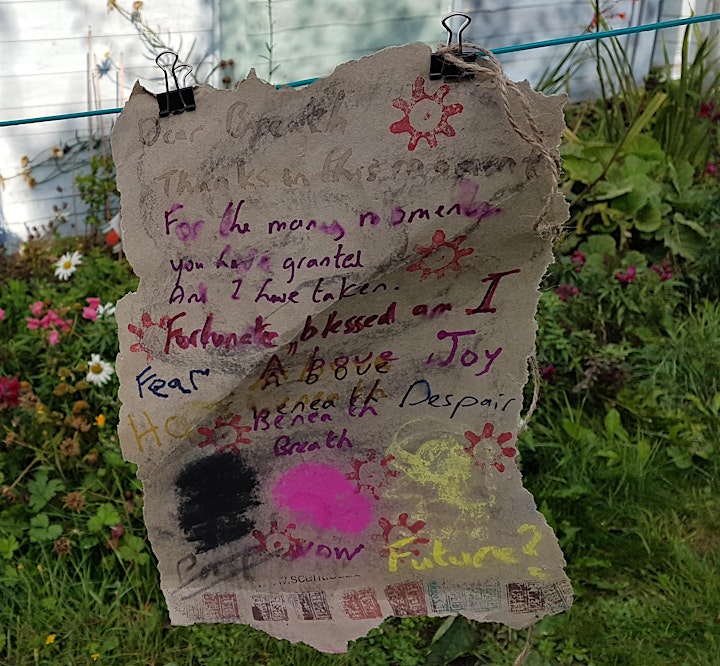 Dear Breath
Thanks in this moment
For the many moments
you have granted
And I have taken.
Fortunate, blessed am I
Above, Joy
Fear
Above
Beneath Despair
Beneath
Breath
Now Future?